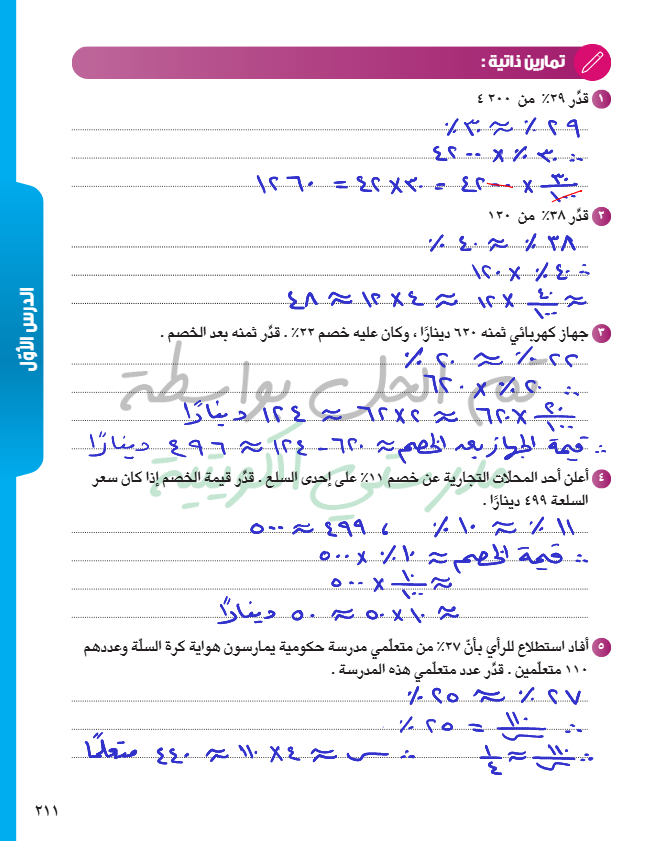 تمارين ذاتية :
١ قدِّر ٢٩٪ من ٤ ٢٠٠
٢٩ ٪ ≈ ٣٠ ٪
∴ ٣٠ ٪ × ٤٢٠٠
٣٠/١٠٠ × ٤٢٠٠ = ٤٢ × ٣٠ = ١٢٦٠
٢ قدِّر ٣٨٪ من ١٢٠
٣٨ ٪ ≈ ٤٠ ٪
∴ ٤٠ ٪ × ١٢٠
≈ ٤٠/١٠٠ × ١٢٠ ≈ ٤ × ١٢ ≈ ٤٨
٣ جهاز كهربائي ثمنه ٦٢٠ دينارًا ، وكان عليه خصم ٢٢٪ . قدِّر ثمنه بعد الخصم .
٢٢ ٪ ≈ ٢٠ ٪
∴ ٢٠ ٪ × ٦٢٠
٢٠/١٠٠ × ٦٢٠ ≈ ٢ × ٦٢ ≈ ١٢٤ دينارًا
∴ قيمة الجهاز بعد الخصم ≈ ٦٢٠ - ١٢٤ ≈ ٤٩٦ دينارًا
تم الحل بواسطة
مدرستي الكويتية
٤ أعلن أحد المحلات التجارية عن خصم ١١٪ على إحدى السلع . قدِّر قيمة الخصم إذا كان سعر
السلعة ٤٩٩ دينارًا .
١١ ٪ ≈ ١٠ ٪ ، ٤٩٩ ≈ ٥٠٠
∴ قيمة الخصم ≈ ١٠ ٪ × ٥٠٠
≈ ١٠/١٠٠ × ٥٠٠
≈ ١٠ × ٥٠ ≈ ٥٠ دينارًا
٥ أفاد استطلاع للرأي بأنّ ٢٧٪ من متعلّمي مدرسة حكومية يمارسون هواية كرة السلّة وعددهم
١١٠ متعلّمين . قدِّر عدد متعلّمي هذه المدرسة .
٢٧ ٪ ≈ ٢٥ ٪
∴ ١١٠/س = ٢٥ ٪
∴ ١١٠/س ≈ ١/٤ ∴ س ≈ ٤ × ١١٠ ≈ ٤٤٠ متعلمًا
الدرس الأوّل
٢١١